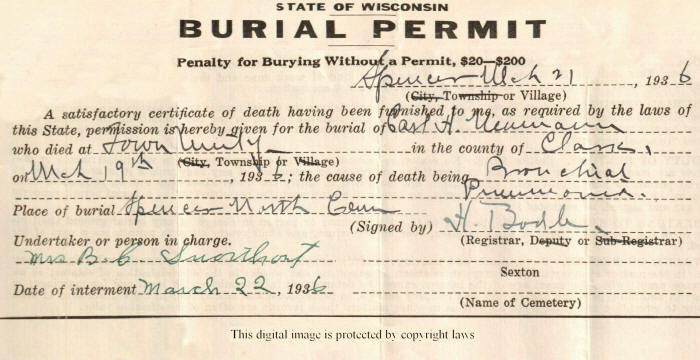 STATE OF WISCONSIN
BURIAL PERMIT
Penalty for Burying Without a Permit, $20—$200
Spencer Mch 21, 1936
(City, Township or Village)
A satisfactory certificate of death having been furnished to me, as required by the laws of
this State, permission is hereby given for the burial of Carl A. Neumann
who died at Town Unity in the county of Clark,
(City, Township or Village)
on Mch 19th, 1936; the cause of death being Bronchial
Pneumonia.
Place of burial Spencer North Cem
(Signed by) H. Bodle.
Undertaker or person in charge. (Registrar, Deputy or Sub-Registrar)
Mrs B. C.
Sexton
Date of interment March 22, 1936
(Name of Cemetery)
This digital image is protected by copyright laws